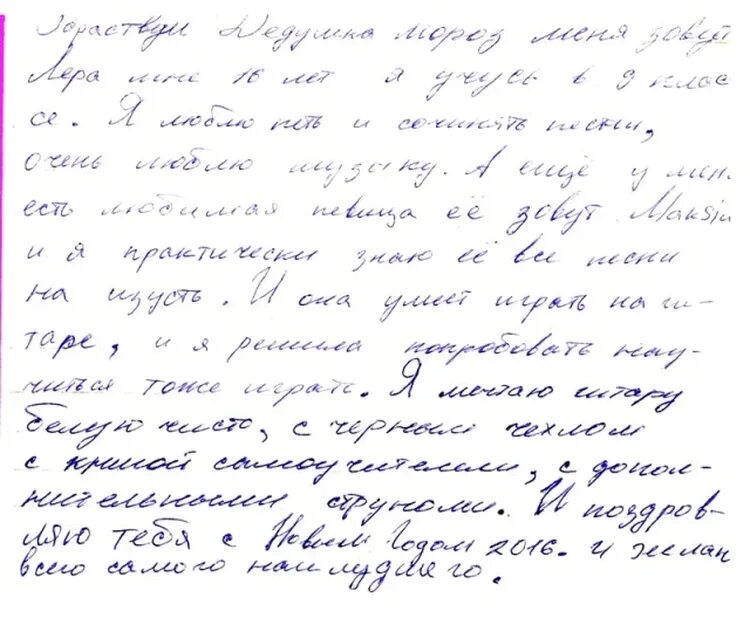 Здраствуй Дедушка мороз меня зовут
Лера мне 16 лет я учусь в 9 клас
се. Я люблю петь и сочинять песни,
очень люблю музыку. А ещё у мен
есть любимая певица её зовут Maksim
и я практически знаю её все песни
на изусть. И она умеет играть на ги-
таре, и я решила попробовать нау-
читься тоже играть. Я мечтаю гитару
белую чисто, с черным чехлом
с книгой самоучителем, с допол-
нительными струнами. И поздров-
ляю тебя с Новым Годом 2016. и желаю
всего самого наилудшего.